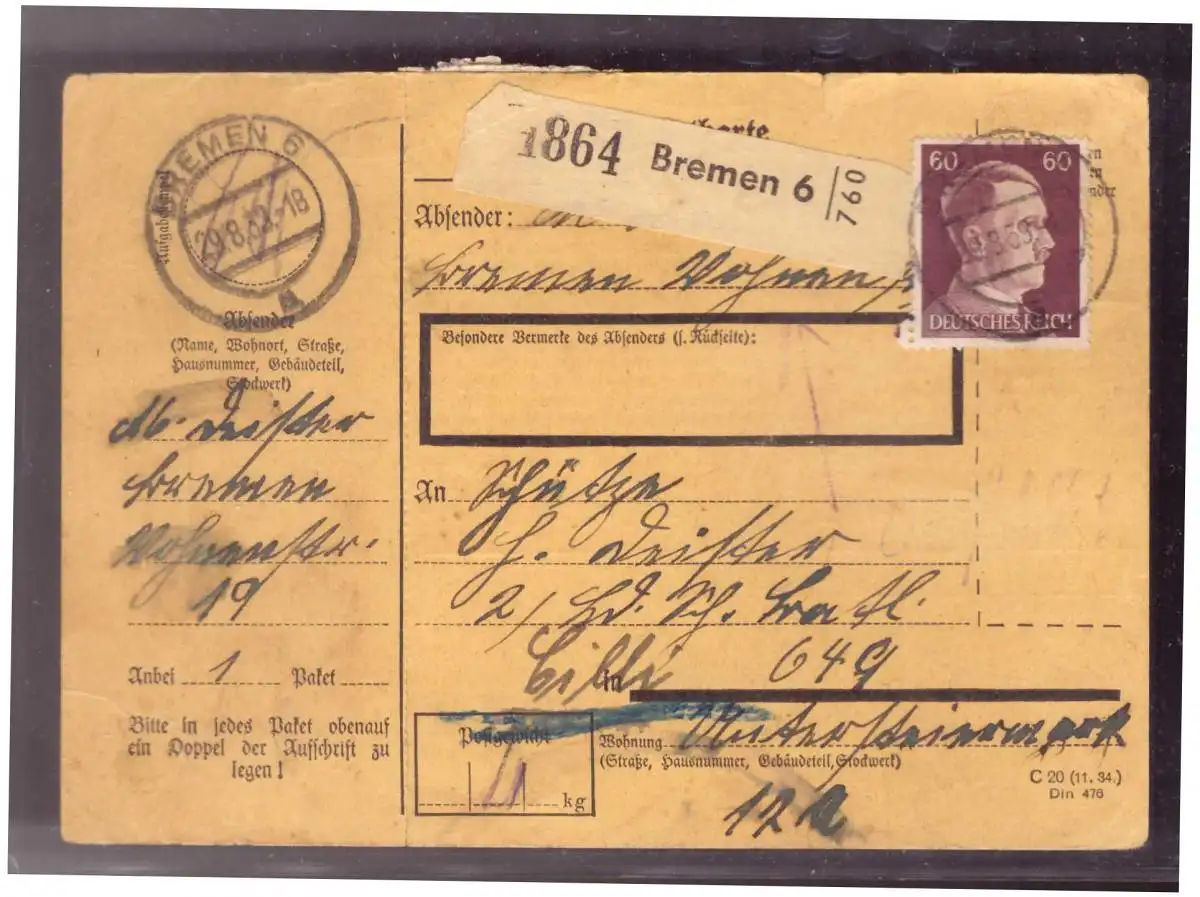 BREMEN 6
29.8.
-18
a
Aufgabestempel
Absender
(Name, Wohnort, Straße,
Hausnummer, Gebäudeteil,
Stockwerk)
Deister
Bremen
19
Anbei 1 Paket
Bitte in jedes Paket obenauf
ein Doppel der Aufschrift zu
legen!
1864 Bremen 6 760
Absender:
Bremen
60 60
DEUTSCHES REICH
Besondere Vermerke des Absenders (s. Rückseite):
An Schütze
H. Deister
2/ Ld. Sch. Batl.
649
Cilli in
Untersteiermark
Postgewicht
kg
Wohnung
(Straße, Hausnummer, Gebäudeteil, Stockwerk)
12a
C 20 (11. 34.)
Din 476